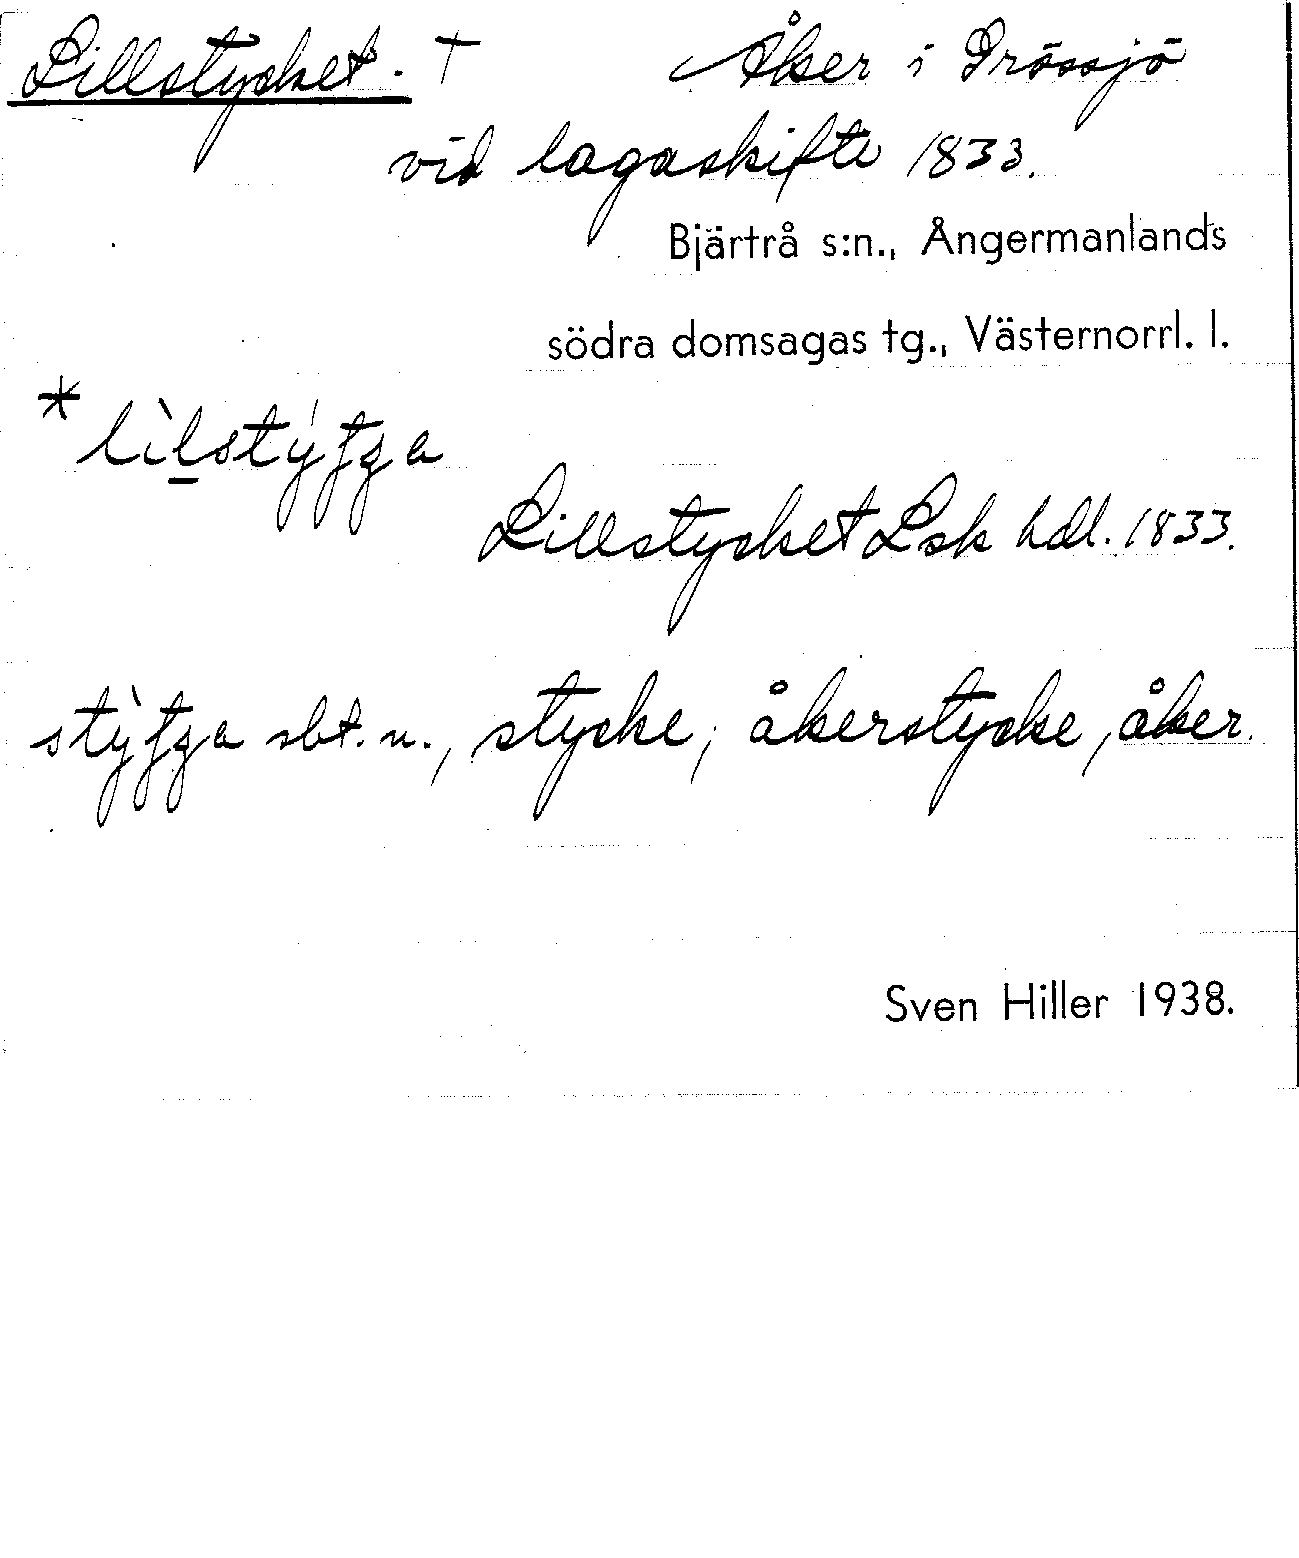 Lillstycket. † Åker i Grössjö
vid lagaskifte 1833.
Bjärtrå s:n., Ångermanlands
södra domsagas tg., Västernorrl. l.
Lillstycket Lsk hdl. 1833.
sbt. n., stycke; åkerstycke, åker.
Sven Hiller 1938.